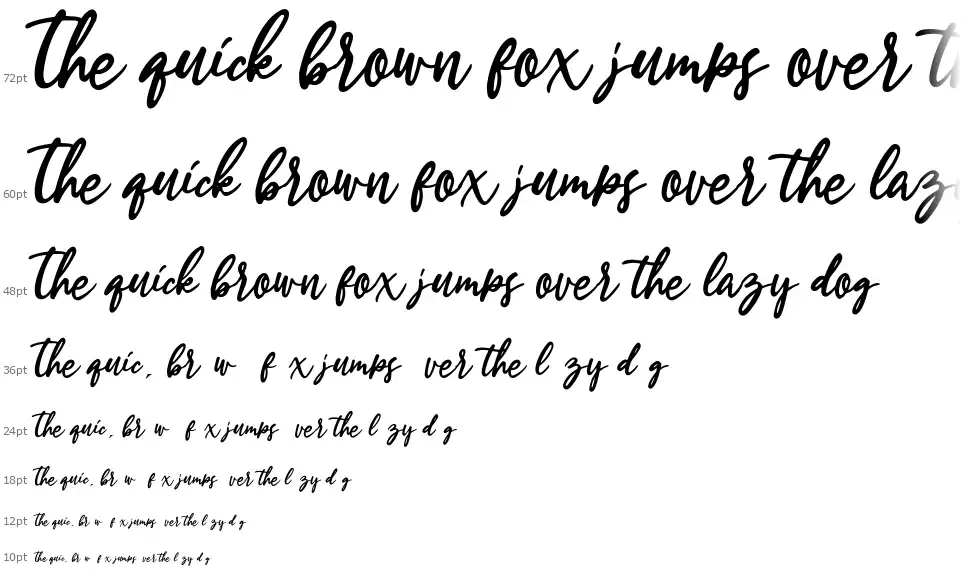 72pt The quick brown fox jumps over t
60pt The quick brown fox jumps over the laz
48pt The quick brown fox jumps over the lazy dog
36pt The quic, br w f x jumps ver the l zy d g
24pt The quic, br w f x jumps ver the l zy d g
18pt The quic, br w f x jumps ver the l zy d g
12pt The quic, br w f x jumps ver the l zy d g
10pt The quic, br w f x jumps ver the l zy d g